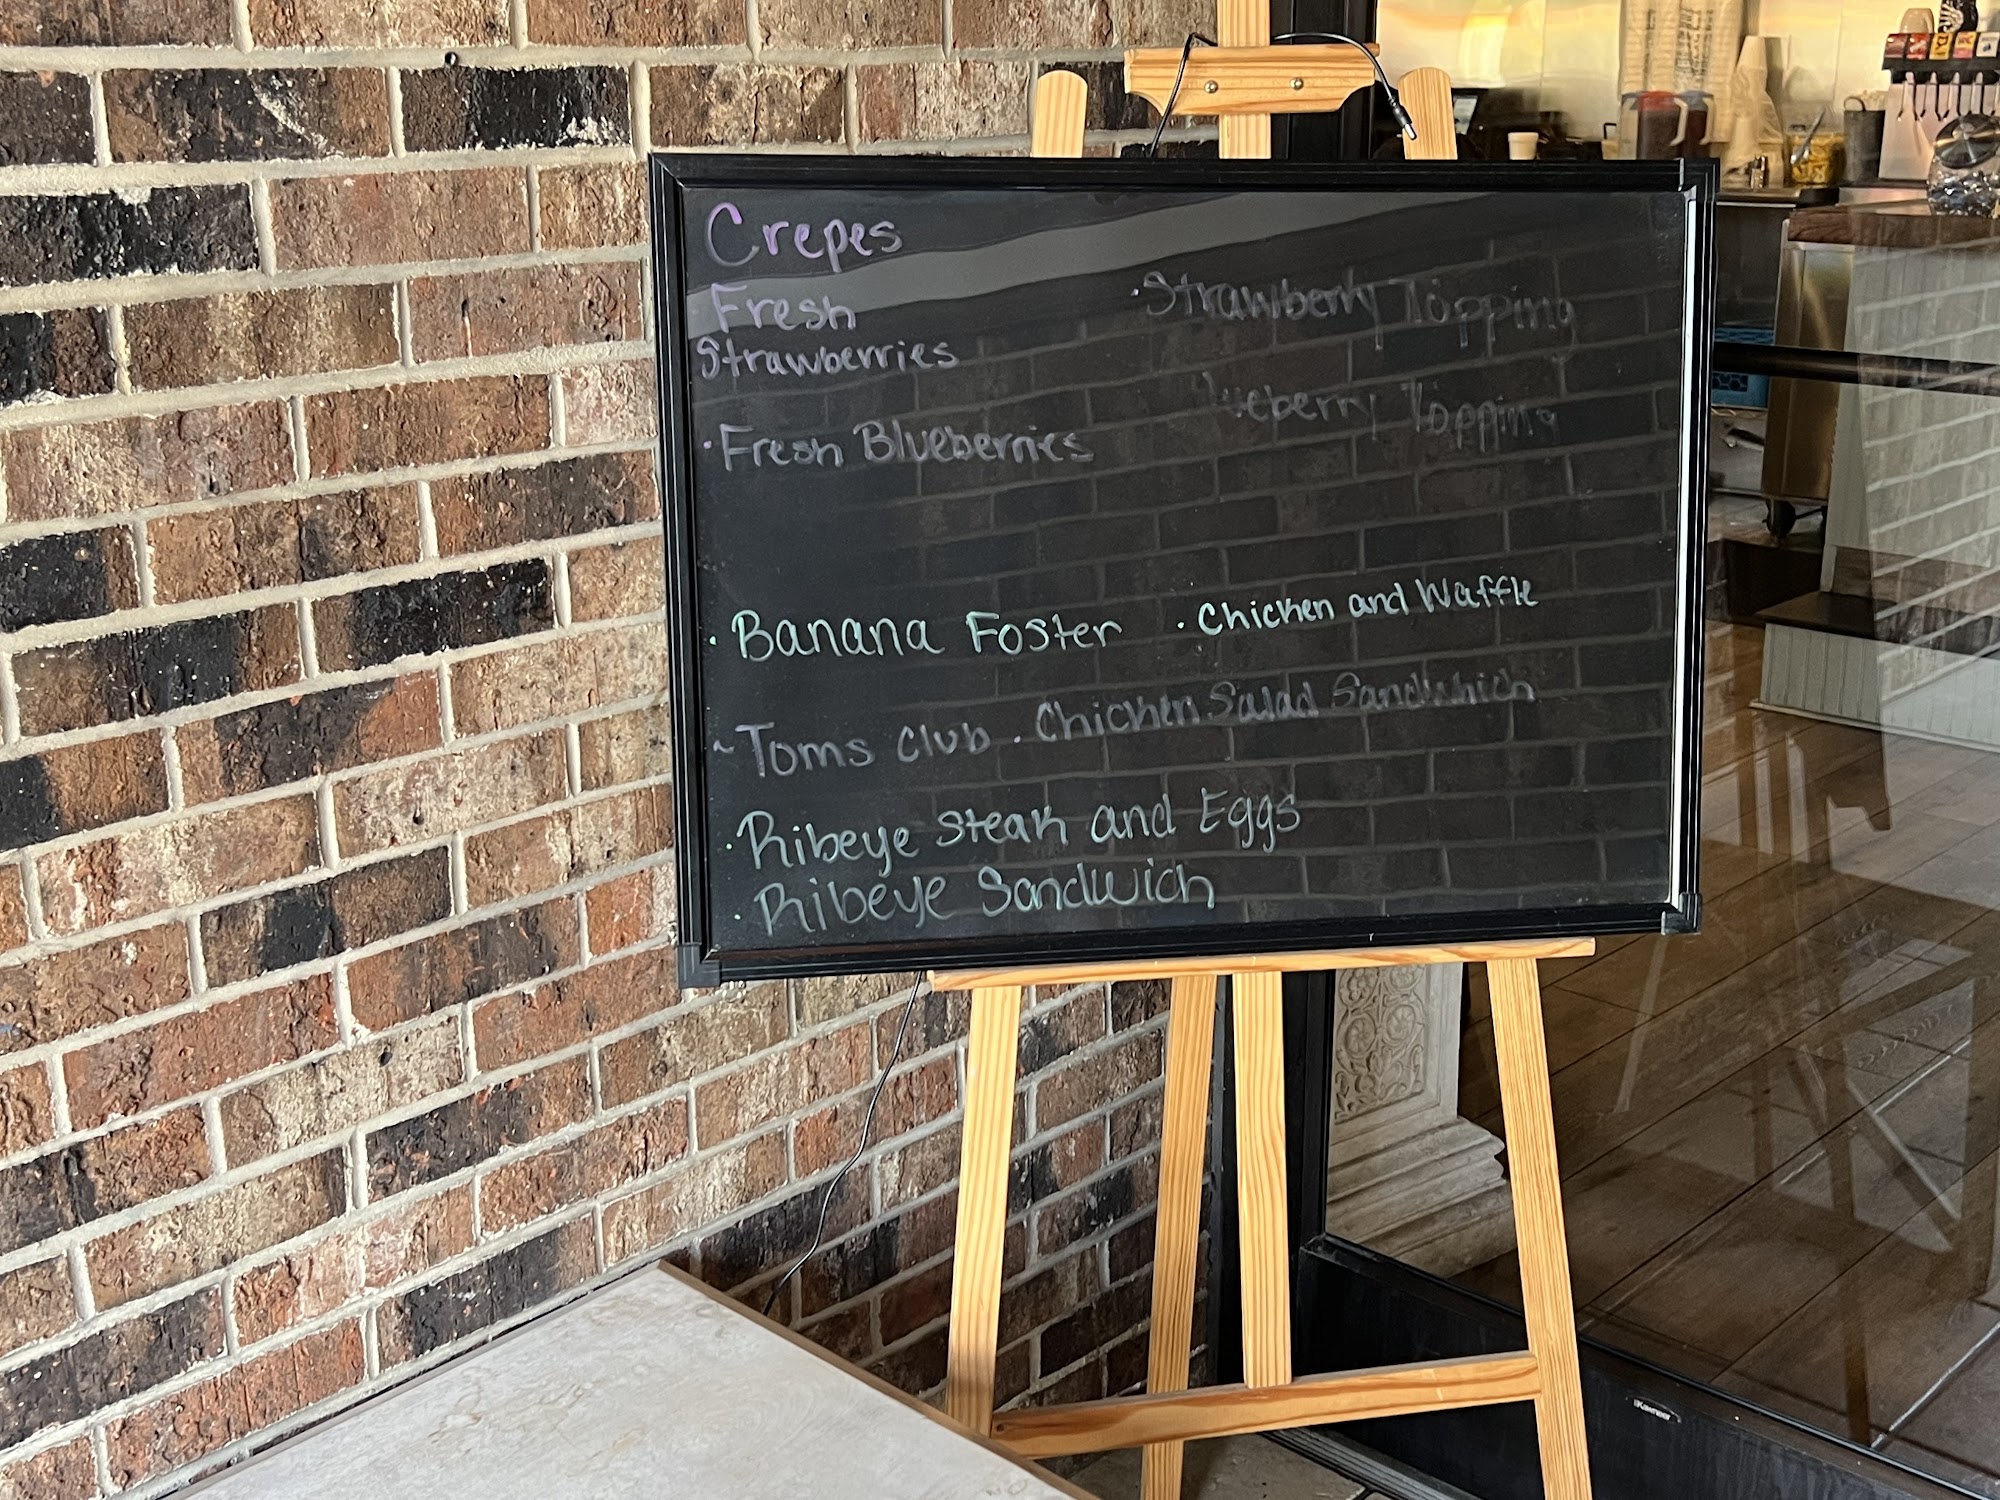 Crepes
Fresh
Strawberries
· Strawberry Topping
· Fresh Blueberries
Topping
· Banana Foster · Chicken and Waffle
~ Toms Club · Chicken Salad Sandwhich
· Ribeye Steak and Eggs
· Ribeye Sandwich
Kawneer